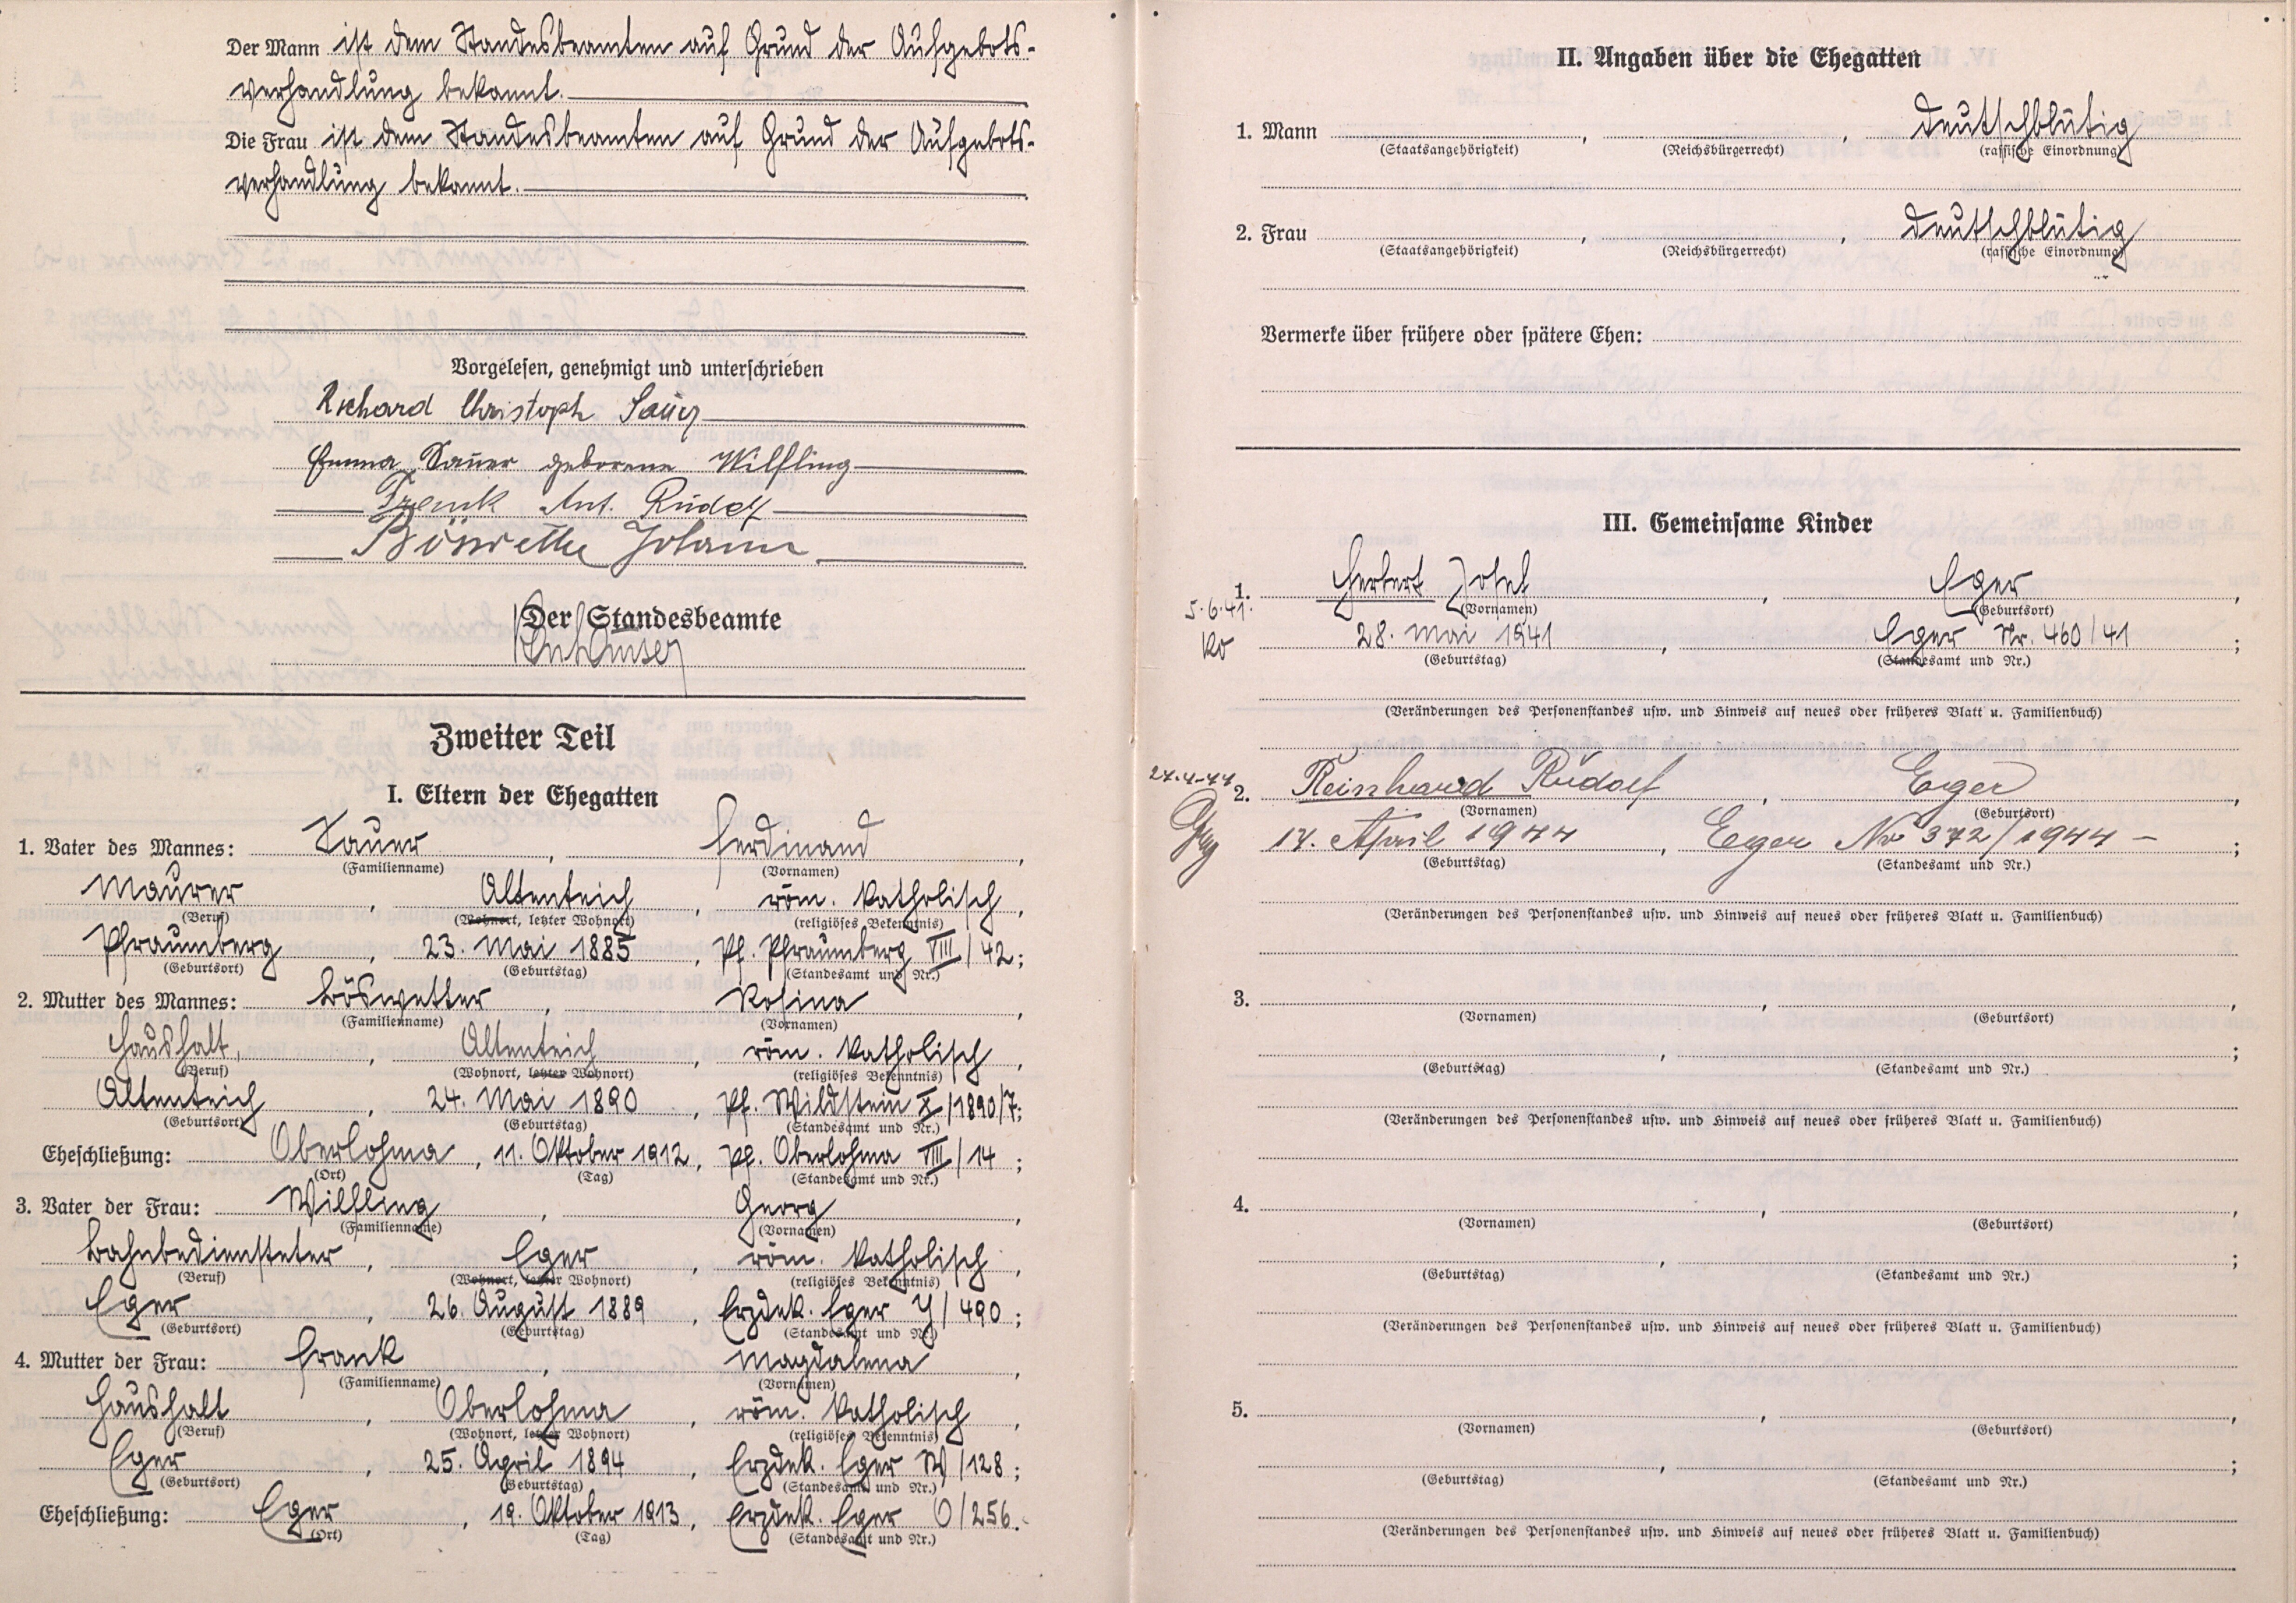 Der Mann ist dem Standesbeamten auf Grund der Aufgebots-
verhandlung bekannt.
Die Frau ist dem Standesbeamten auf Grund der Aufgebots-
verhandlung bekannt.
Vorgelesen, genehmigt und unterschrieben
Richard Christoph Sauer
Emma Sauer geborene Wilfling
Frank Ant. Rudolf
Böswetter Johann
Der Standesbeamte
Zweiter Teil
I. Eltern der Ehegatten
1. Vater des Mannes: Sauer, Ferdinand,
(Familienname) (Vornamen)
Maurer, Altenteich, röm. katholisch,
(Beruf) (Wohnort, letzter Wohnort) (religiöses Bekenntnis)
Pfraumberg, 23. Mai 1885, Pf. Pfraumberg VIII/42;
(Geburtsort) (Geburtstag) (Standesamt und Nr.)
2. Mutter des Mannes: Böswetter, Rosina,
(Familienname) (Vornamen)
Haushalt, Altenteich, röm. katholisch,
(Beruf) (Wohnort, letzter Wohnort) (religiöses Bekenntnis)
Altenteich, 24. Mai 1890, Pf. Wildstein X/1890/7;
(Geburtsort) (Geburtstag) (Standesamt und Nr.)
Eheschließung: Oberlohma, 11. Oktober 1912, Pf. Oberlohma VIII/14;
(Ort) (Tag) (Standesamt und Nr.)
3. Vater der Frau: Wilfling, Georg,
(Familienname) (Vornamen)
Bahnbediensteter, Eger, röm. katholisch,
(Beruf) (Wohnort, letzter Wohnort) (religiöses Bekenntnis)
Eger, 26. August 1889, Erzdek. Eger Y/490;
(Geburtsort) (Geburtstag) (Standesamt und Nr.)
4. Mutter der Frau: Frank, Magdalena,
(Familienname) (Vornamen)
Haushalt, Oberlohma, röm. katholisch,
(Beruf) (Wohnort, letzter Wohnort) (religiöses Bekenntnis)
Eger, 25. April 1894, Erzdek. Eger W/128;
(Geburtsort) (Geburtstag) (Standesamt und Nr.)
Eheschließung: Eger, 19. Oktober 1913, Erzdek. Eger O/256.
(Ort) (Tag) (Standesamt und Nr.)
II. Angaben über die Ehegatten
1. Mann , , deutschblütig
(Staatsangehörigkeit) (Reichsbürgerrecht) (rassische Einordnung)
2. Frau , , deutschblütig
(Staatsangehörigkeit) (Reichsbürgerrecht) (rassische Einordnung)
Vermerke über frühere oder spätere Ehen:
III. Gemeinsame Kinder
1. Herbert Josef, Eger,
5.6.41. (Vornamen) (Geburtsort)
Ko 28. Mai 1941, Eger Nr. 460/41;
(Geburtstag) (Standesamt und Nr.)
(Veränderungen des Personenstandes usw. und Hinweis auf neues oder früheres Blatt u. Familienbuch)
24.4.44 2. Reinhard Rudolf, Eger,
(Vornamen) (Geburtsort)
14. April 1944, Eger No 372/1944 - ;
(Geburtstag) (Standesamt und Nr.)
(Veränderungen des Personenstandes usw. und Hinweis auf neues oder früheres Blatt u. Familienbuch)
3. , ,
(Vornamen) (Geburtsort)
, ;
(Geburtstag) (Standesamt und Nr.)
(Veränderungen des Personenstandes usw. und Hinweis auf neues oder früheres Blatt u. Familienbuch)
4. , ,
(Vornamen) (Geburtsort)
, ;
(Geburtstag) (Standesamt und Nr.)
(Veränderungen des Personenstandes usw. und Hinweis auf neues oder früheres Blatt u. Familienbuch)
5. , ,
(Vornamen) (Geburtsort)
, ;
(Geburtstag) (Standesamt und Nr.)
(Veränderungen des Personenstandes usw. und Hinweis auf neues oder früheres Blatt u. Familienbuch)